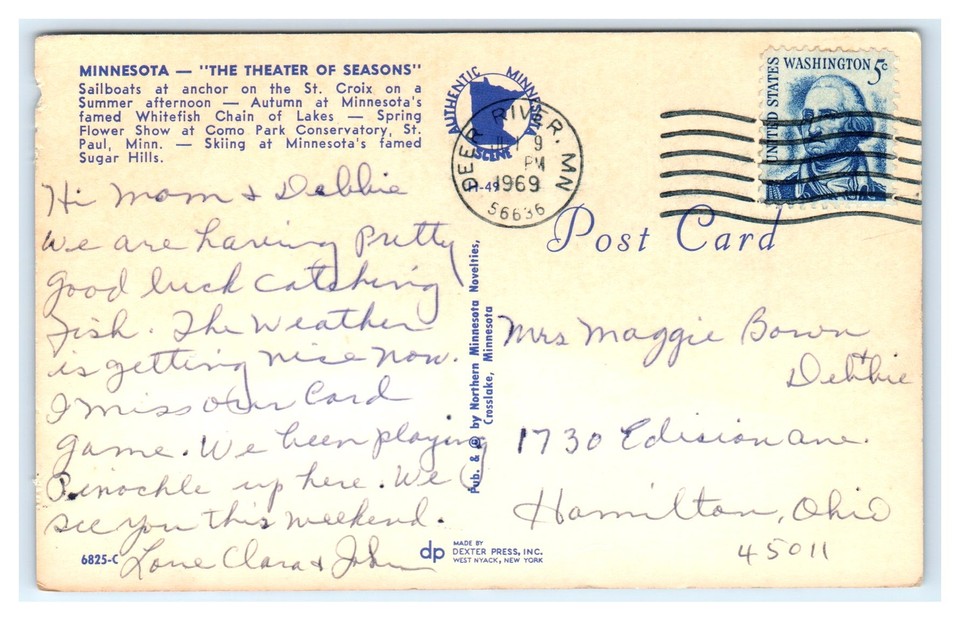 MINNESOTA — "THE THEATER OF SEASONS"
Sailboats at anchor on the St. Croix on a
Summer afternoon — Autumn at Minnesota's
famed Whitefish Chain of Lakes — Spring
Flower Show at Como Park Conservatory, St.
Paul, Minn. — Skiing at Minnesota's famed
Sugar Hills.
Hi Mom & Debbie
We are having pretty
good luck catching
fish. The Weather
is getting nice now.
I miss our Card
game. We been playing
Pinochle up here. We
see you this weekend.
Love Clara & John
6825-C
AUTHENTIC MINNESOTA
SCENE
49
DEER RIVER, MN
9
PM
1969
56636
UNITED STATES
WASHINGTON 5c
Post Card
Pub. & © by Northern Minnesota Novelties,
Crosslake, Minnesota
Mrs Maggie Bown
+
Debbie
1730 Edision ave.
Hamilton, Ohio
45011
dp
MADE BY
DEXTER PRESS, INC.
WEST NYACK, NEW YORK